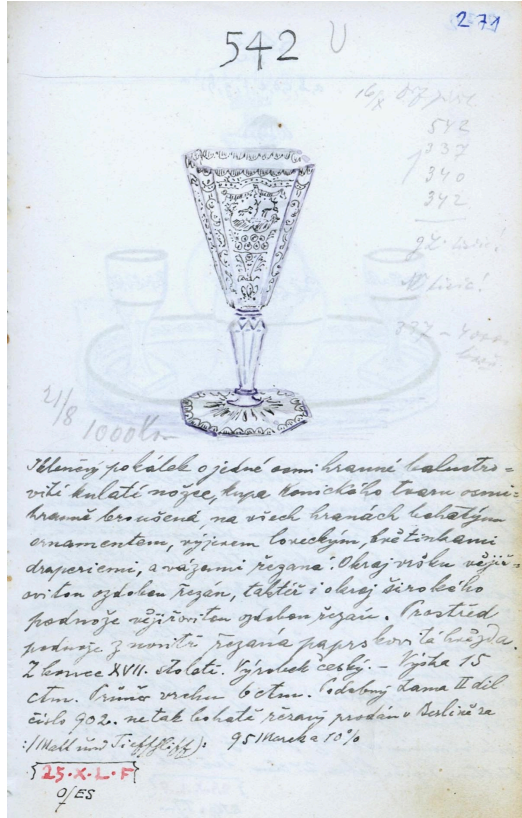 271
542 U
16/X
542
337
340
342
21/8 1000 Kor
Skleněný pokálek o jedné osmihranné balustro=
vité kulaté nožce, kupa konického tvaru osmi=
hranně broušená, na všech hranách bohatým
ornamentem, výjevem loveckým, květinkami
draperiemi, a vázami řezaná. Okraj vršku vějíř=
ovitou ozdobou řezán, taktéž i okraj širokého
podnože vějířovitou ozdobou řezán. Prostřed
podnože z novitř řezaná paprskovitá hvězda.
Z konce XVII. století. Výrobek český. – Výška 15
ctm. Průměr vrchu 6 ctm. Podobný Lama II díl
číslo 902. ne tak bohatě řezaný prodán v Berlíně za
:/Matt und Tiefschliff): 951 Marek a 10%
25·X·L·F
0/ES